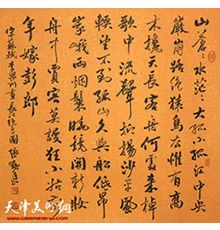 山蒼々水茫々大孤小孤江中央
崖崩路絕猿鳥去惟有喬
木攙天長客舟何處來棹
歌中流聲抑揚沙平風
軟望不到孤山久與船低昂
峨々兩煙鬟曉鏡開新妝
舟中賈客莫謾狂小姑前
年嫁彭郎
宋蘇軾李思訓畫長江絕島圖
天津美術網